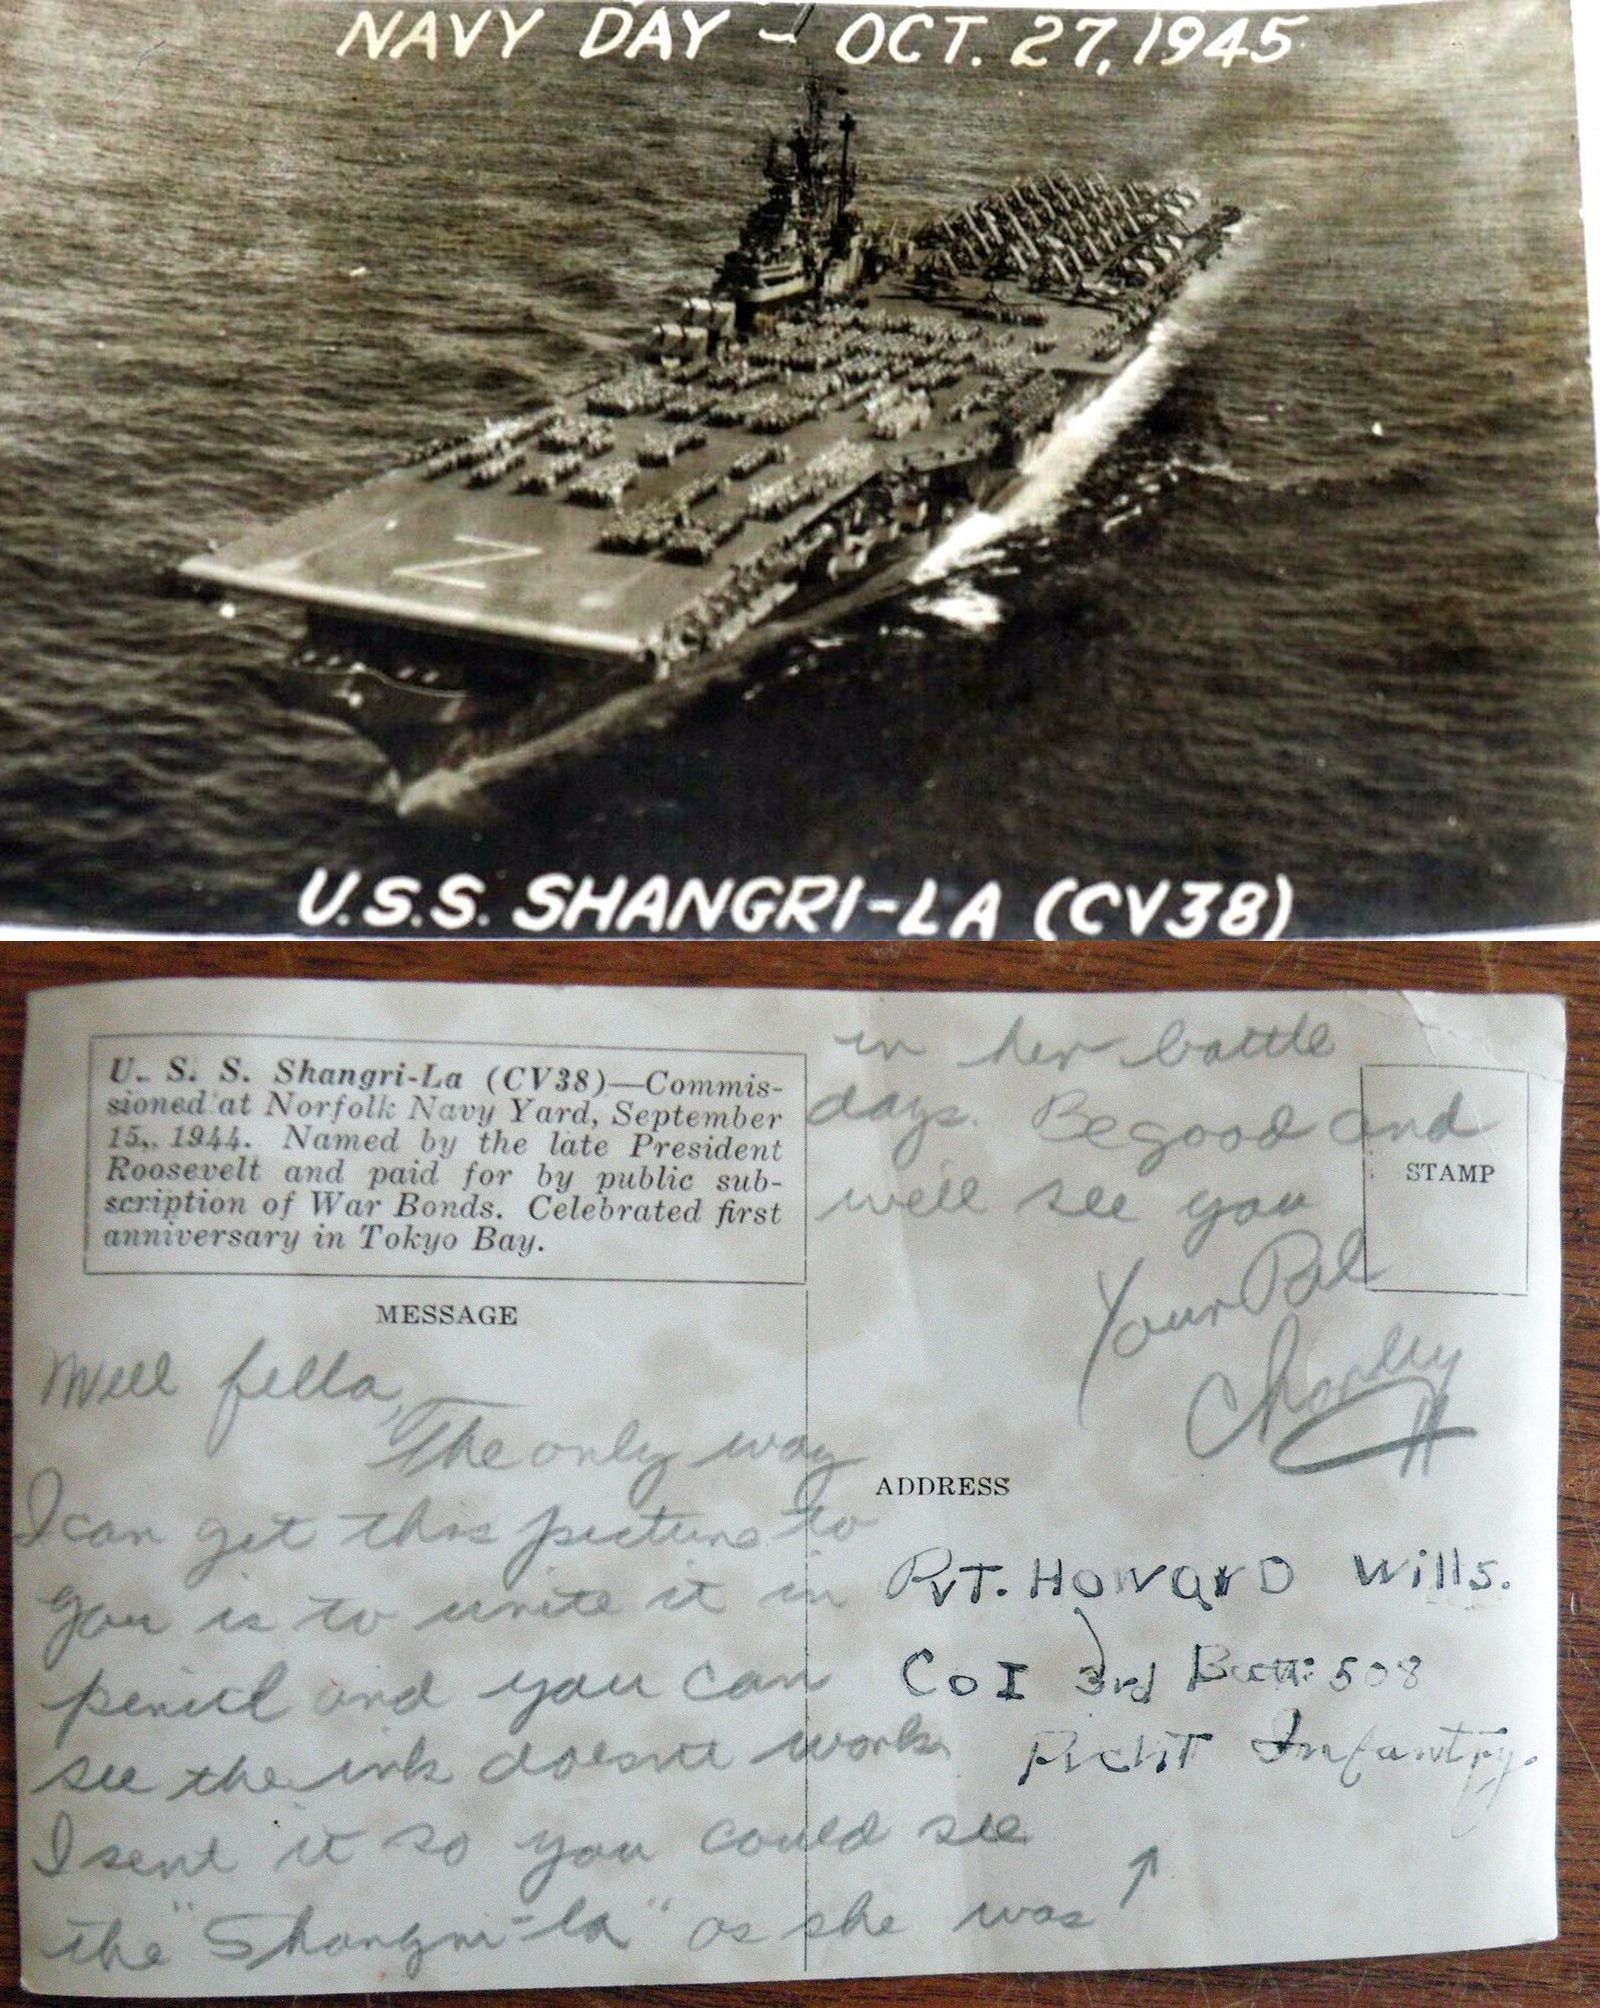 NAVY DAY - OCT. 27, 1945
U.S.S. SHANGRI-LA (CV38)
U. S. S. Shangri-La (CV38)—Commis-
sioned at Norfolk Navy Yard, September
15, 1944. Named by the late President
Roosevelt and paid for by public sub-
scription of War Bonds. Celebrated first
anniversary in Tokyo Bay.
MESSAGE
Well fella,
The only way
I can get this picture to
you is to write it in
pencil and you can
see the ink doesnt work
I sent it so you could see
the "Shangri-la" as she was
in her battle
days. Be good and
we'll see you
Your Pal
STAMP
ADDRESS
Pvt. Howard Wills.
Co I 3rd Batt: 508
Infantry.